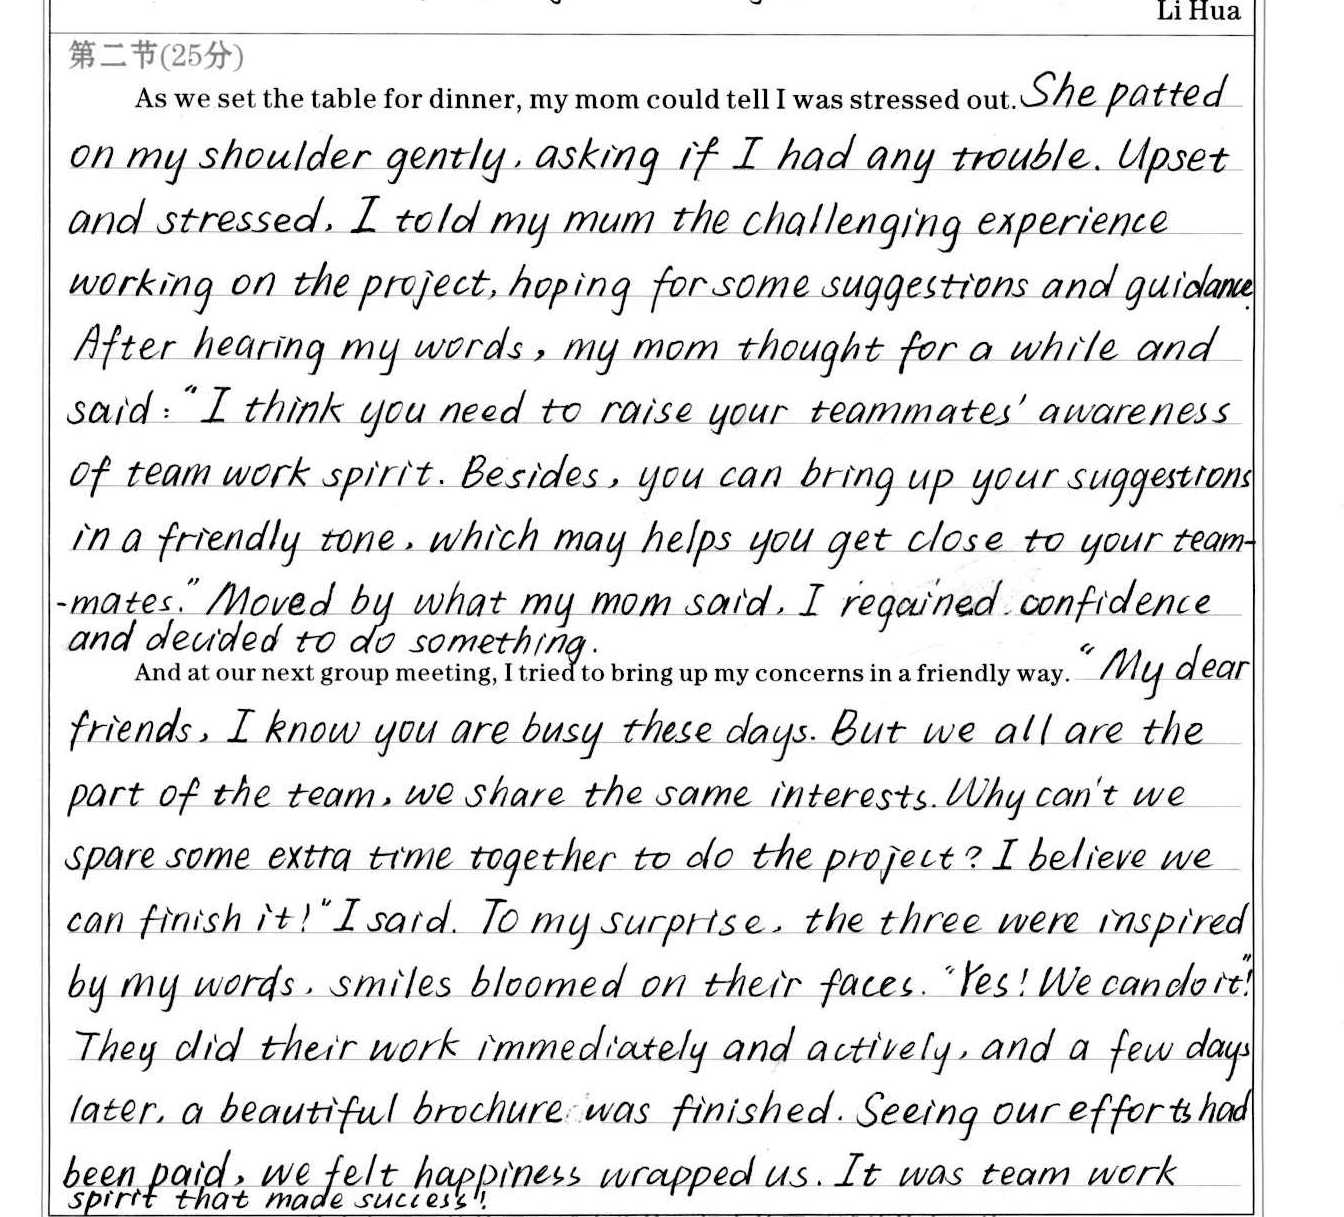 Li Hua
第二节(25分)
As we set the table for dinner, my mom could tell I was stressed out. She patted
on my shoulder gently, asking if I had any trouble. Upset
and stressed, I told my mum the challenging experience
working on the project, hoping for some suggestions and guidance.
After hearing my words, my mom thought for a while and
said: "I think you need to raise your teammates' awareness
of team work spirit. Besides, you can bring up your suggestions
in a friendly tone, which may helps you get close to your team-
-mates." Moved by what my mom said, I regained confidence
and decided to do something.
And at our next group meeting, I tried to bring up my concerns in a friendly way. "My dear
friends, I know you are busy these days. But we all are the
part of the team, we share the same interests. Why can't we
spare some extra time together to do the project? I believe we
can finish it!" I said. To my surprise, the three were inspired
by my words, smiles bloomed on their faces. "Yes! We can do it!"
They did their work immediately and actively, and a few days
later, a beautiful brochure was finished. Seeing our efforts had
been paid, we felt happiness wrapped us. It was team work
spirit that made success!